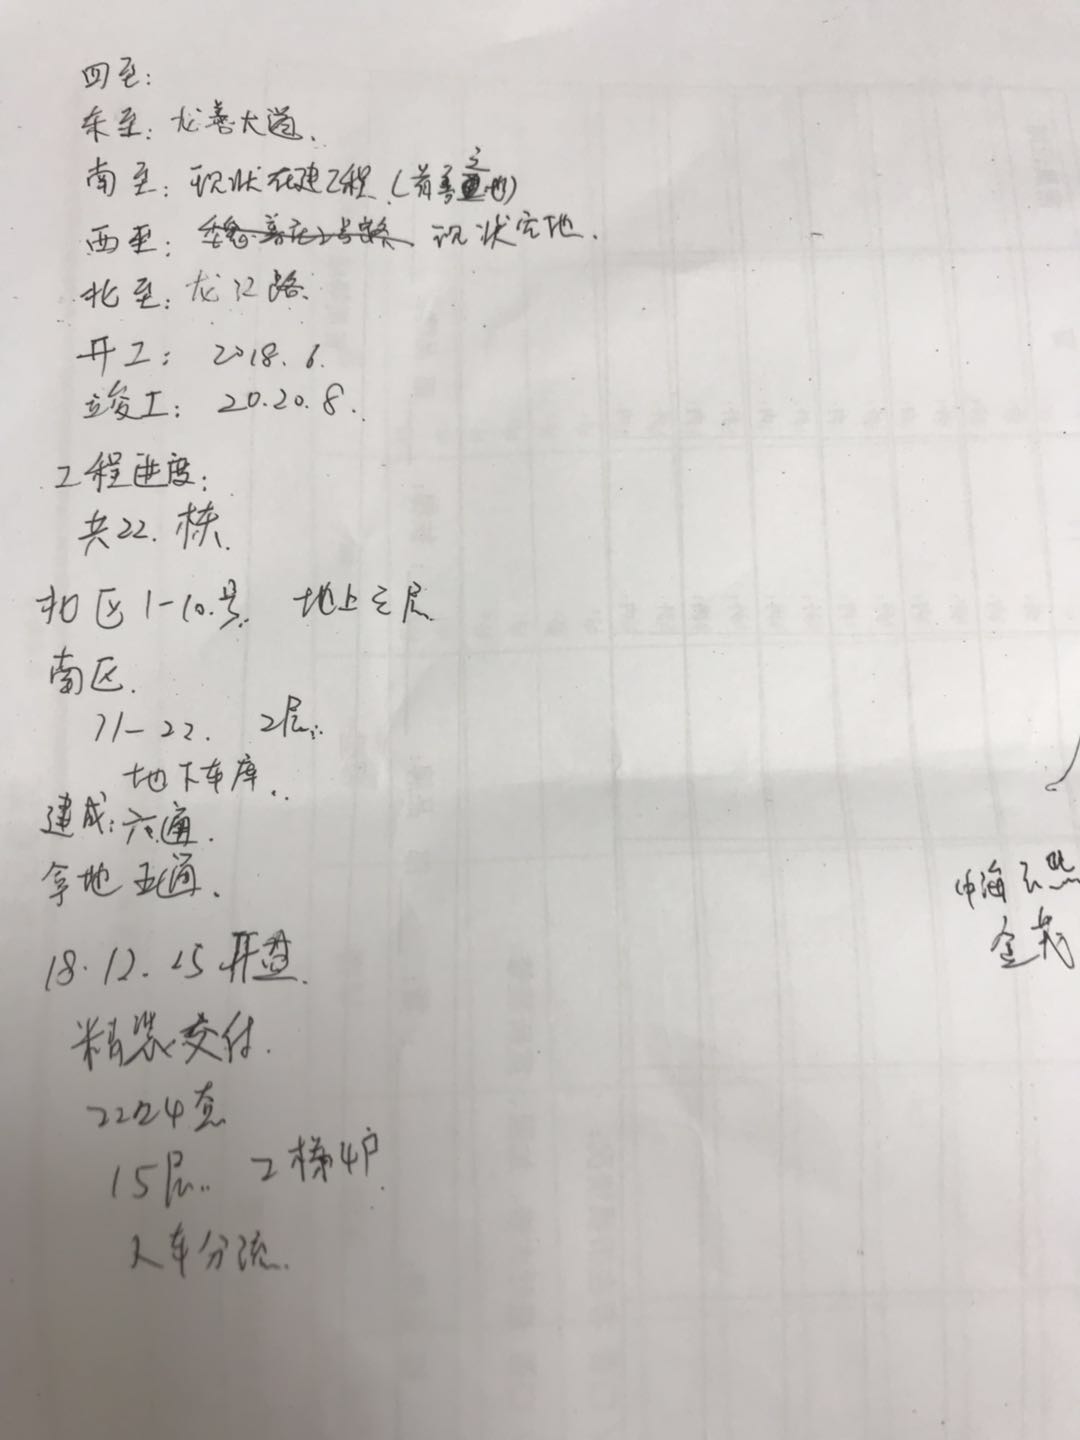 四至:
东至: 龙善大道.
南至: 现状在建工程.(首善之地)
西至: 魏善庄2号路 现状空地.
北至: 龙江路.
开工: 2018.6.
竣工: 20.20.8.
工程进度:
共22.栋.
北区1-10.号. 地上三层
南区.
11-22. 2层.
地下车库.
建成: 六通.
拿地 五通.
18.12.15 开盘.
精装交付.
套
15层. 2梯4户.
人车分流.
中海云
金茂